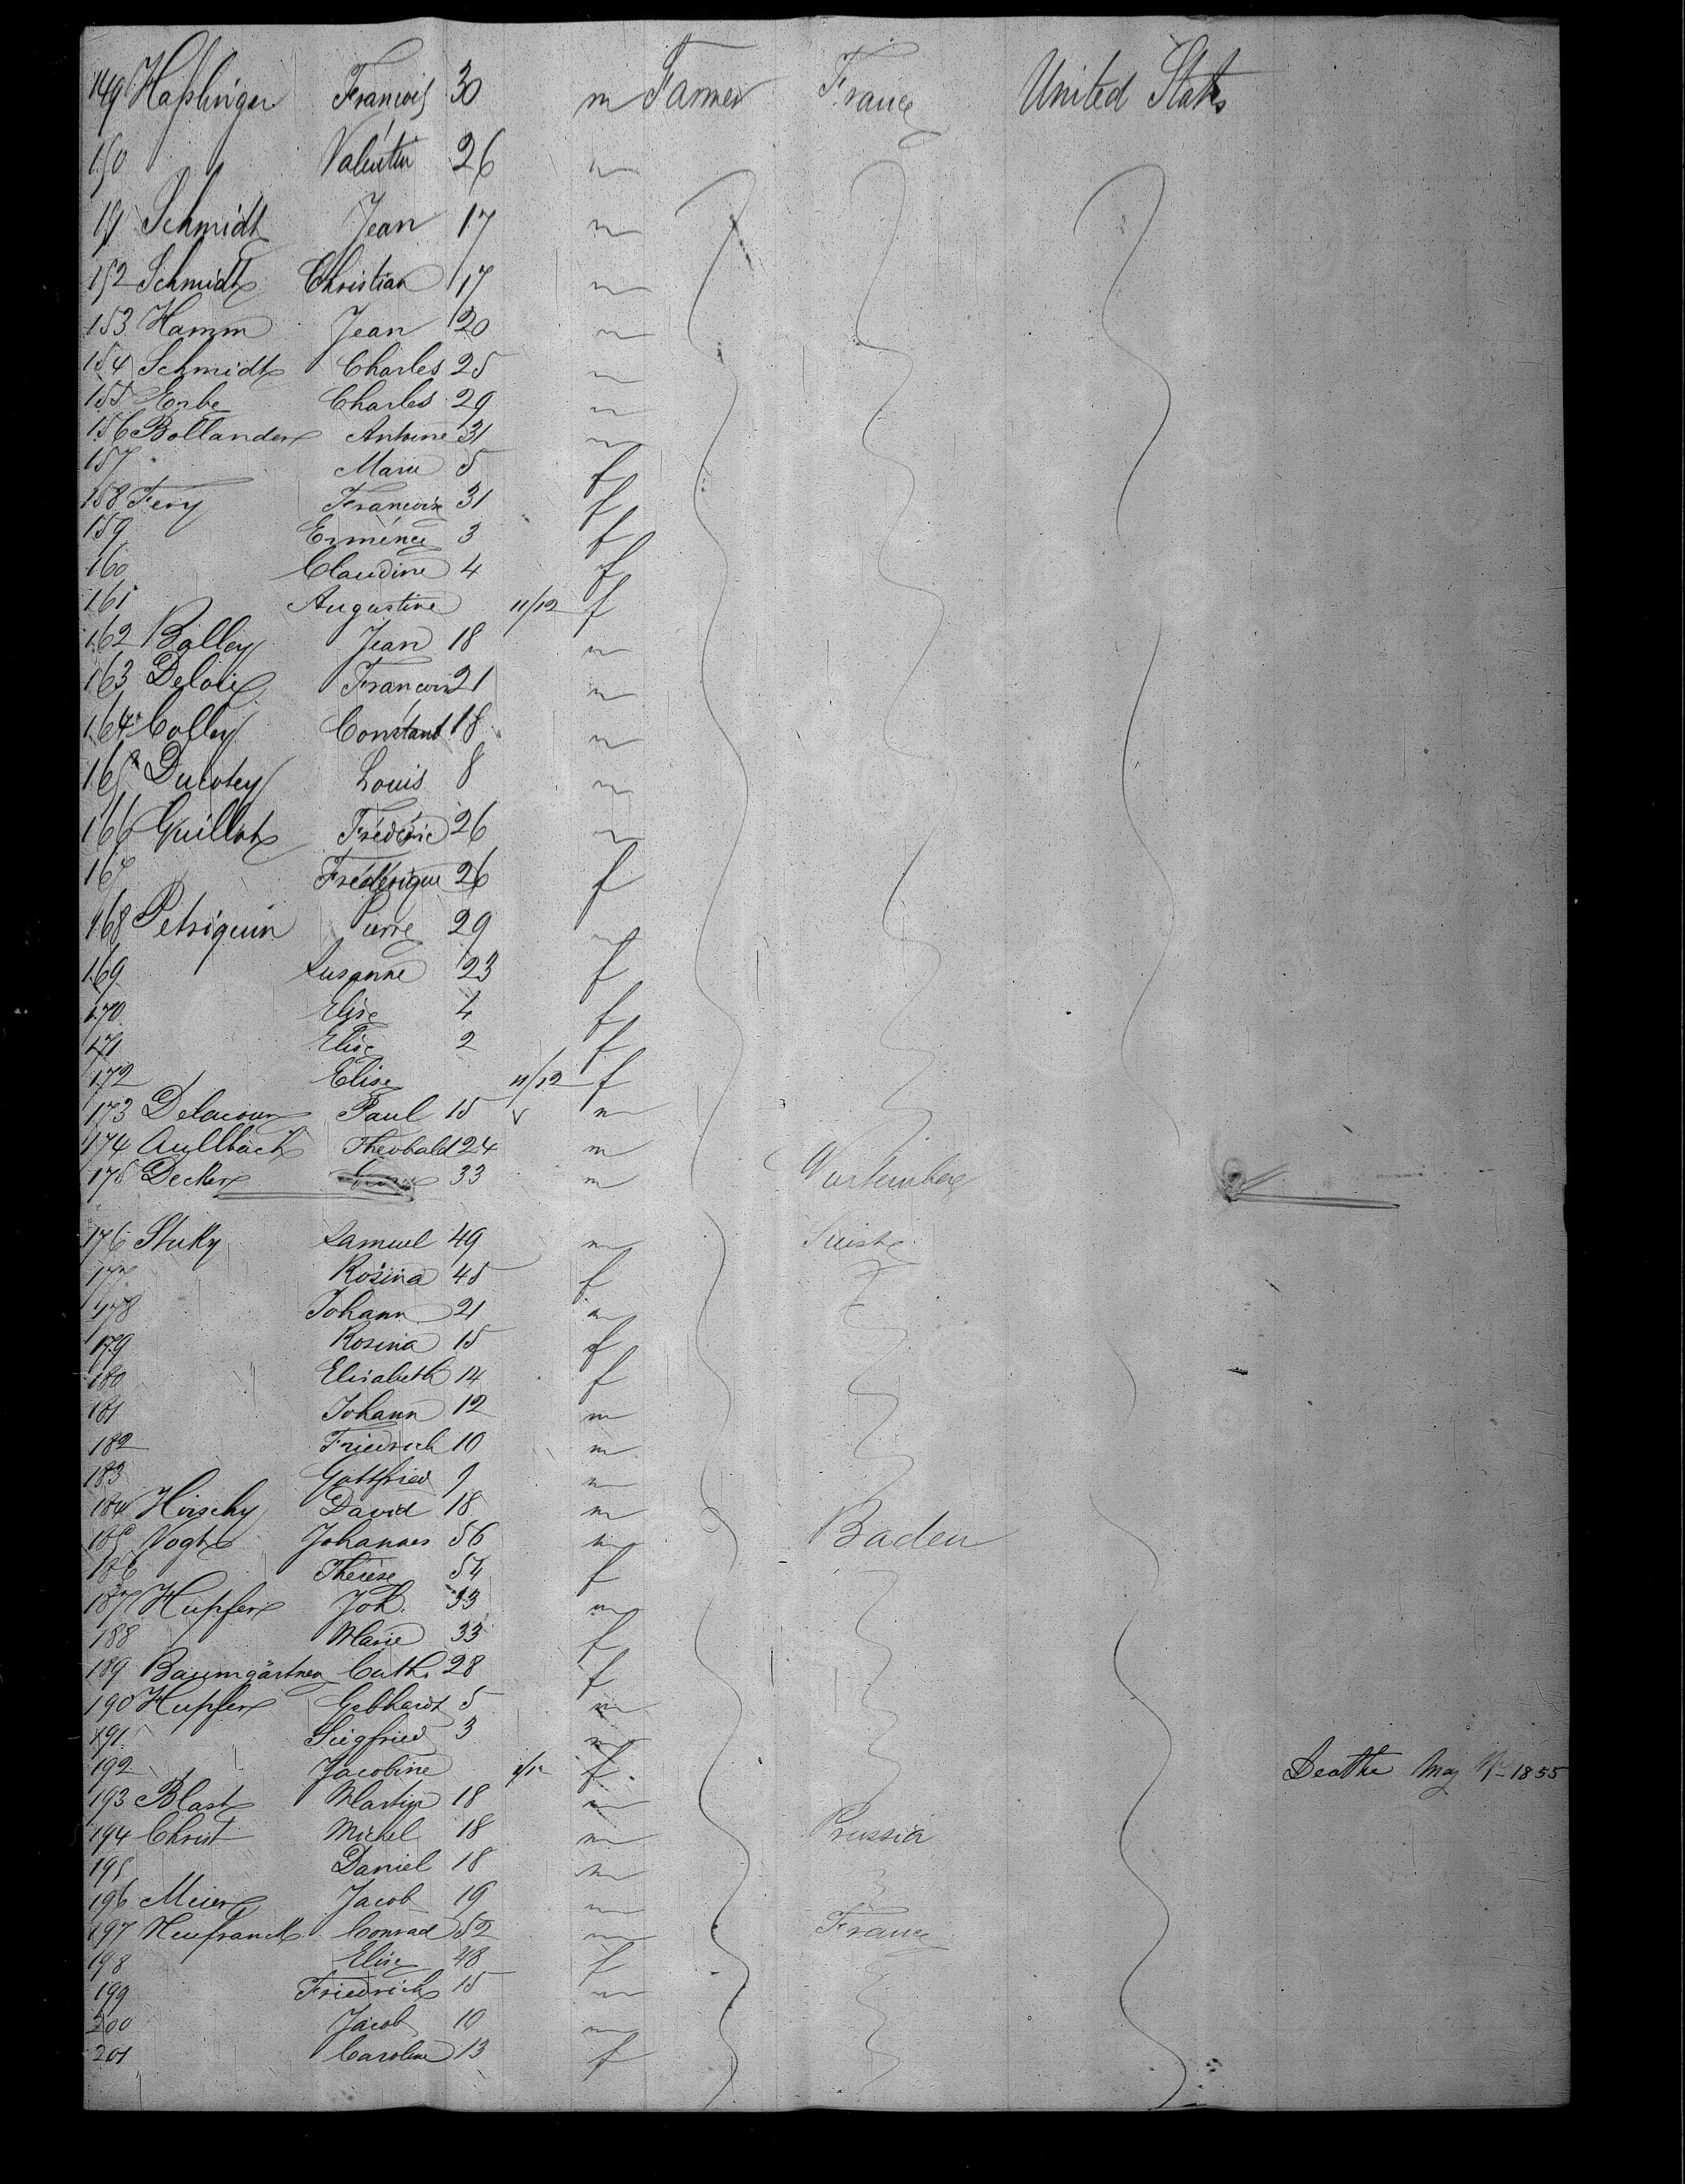 149 Hasslinger François 30 m Farmer France United States
150 " Valentin 26 m
151 Schmidt Jean 17 m
152 Schmidt Christian 17 m
153 Hamm Jean 20 m
154 Schmidt Charles 25 m
155 Erbe Charles 29 m
156 Bollander Antoine 31 m
157 Marie 5 f
158 Fery Françoise 31 f
159 Erménce 3 f
160 Claudine 4 f
161 Augustine 11/12 f
162 Bolley Jean 18 m
163 Deloix François 21 m
164 Colley Constant 18 m
165 Ducotey Louis 8 m
166 Guillot Fréderic 26 m
167 Fréderique 26 f
168 Petriquin Pierre 29 m
169 Susanne 23 f
170 Elise 4 f
171 Elise 2 f
172 Elise 11/12 f
173 Delacour Paul 15 m
174 Aullbach Theobald 24 m
175 Decker 33 m Wurtemberg
176 Stuky Samuel 49 m
177 Rosina 45 f
178 Johann 21 m
179 Rosina 15 f
180 Elisabeth 14 f
181 Johann 12 m
182 Friedrich 10 m
183 Gottfried 9 m
184 Hirschy David 18 m
185 Vogt Johannes 56 m Baden
186 Therese 54 f
187 Hupfer Joh. 33 m
188 Marie 33 f
189 Baumgärtner Cath. 28 f
190 Hupfer Gebhardt 5 m
191 Siegfried 3 m
192 Jacobine f Deathe May 1855
193 Blast Martin 18 m
194 Christ Michel 18 m Prussia
195 Daniel 18 m
196 Meier Jacob 19 m
197 Neufranck Conrad 52 m France
198 Elise 48 f
199 Friedrich 15 m
200 Jacob 10 m
201 Caroline 13 f